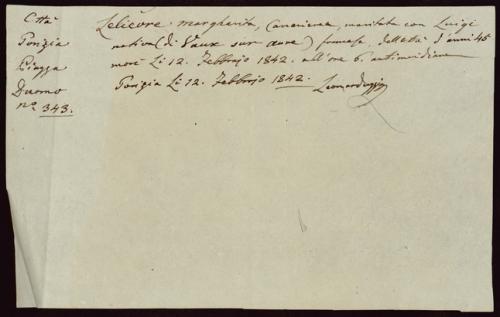 Città
Porzia
Piazza
Duomo
n.° 343.
Lelievre Margherita, Cameriera, maritata con Luigi
nativa (di Vaux sur aure) francese dell'età d'anni 45
morì Li 12. Febbrajo 1842. all'ore 6. antimeridiane
Porzia Li 12. Febbrajo 1842.